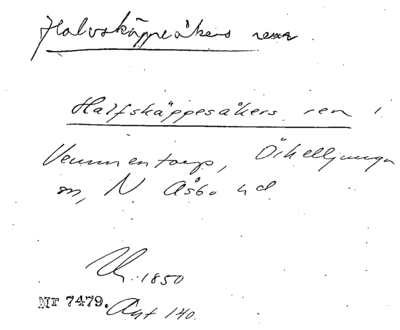 Halvskäppeåkers ren
Halfskäppesåkers ren i
Vemmentorp, Örkelljunga
sn, N. Åsbo hd
1850
Nr 7479. Akt 140.